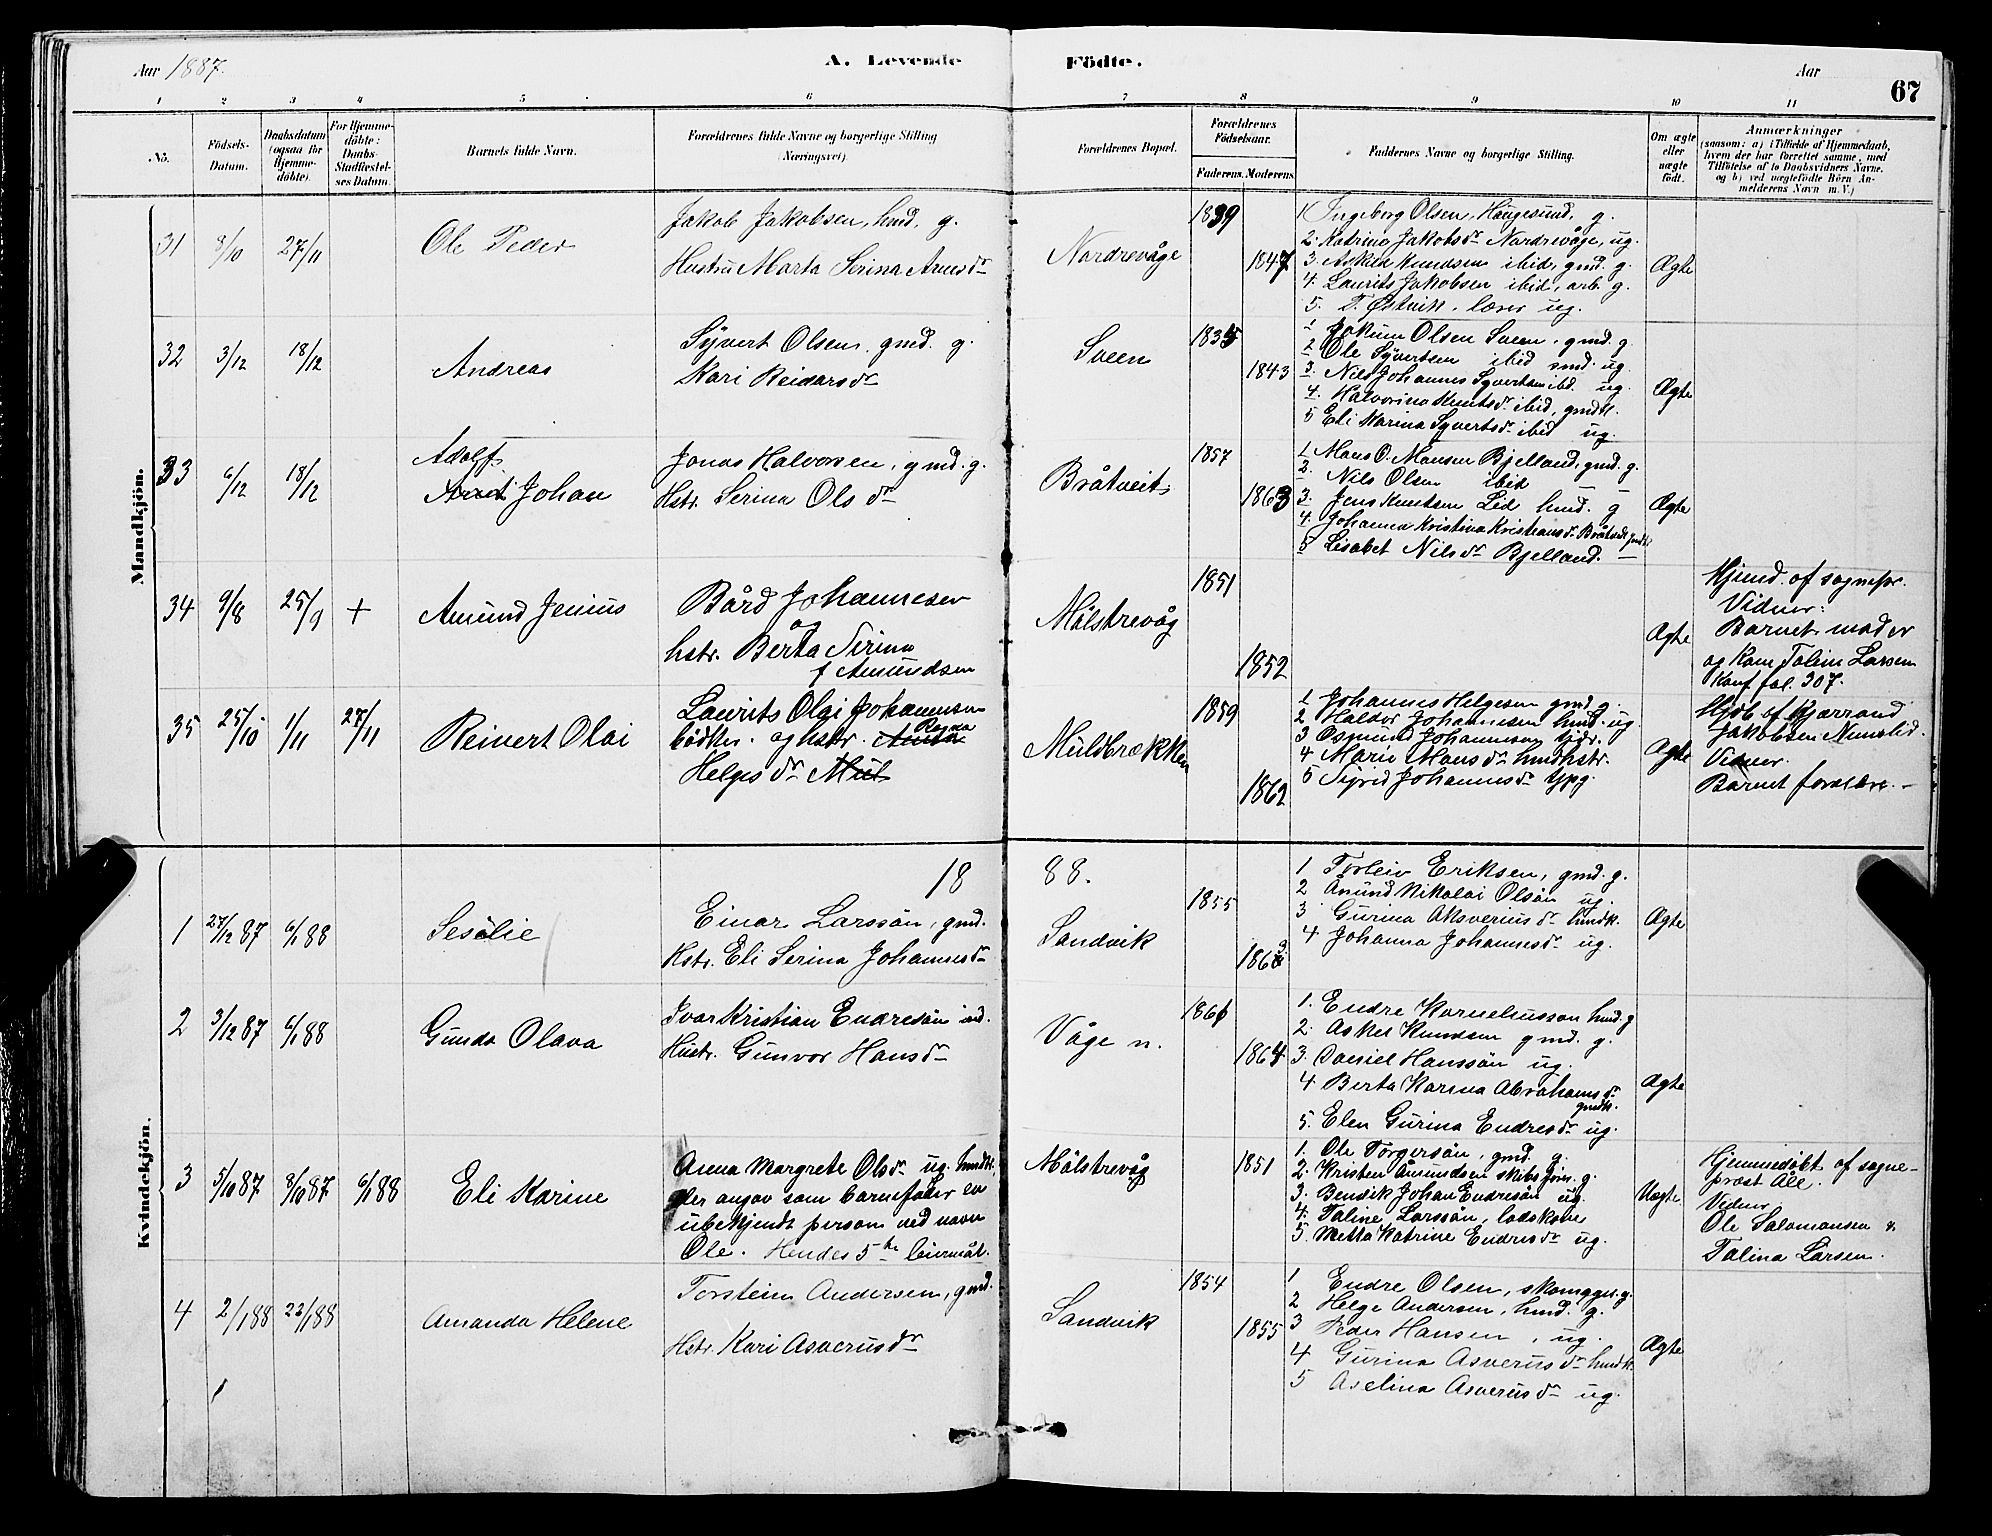 Aar 1887.
A. Levende Födte.
Aar
67
1 2 3 4 5 6 7 8 9 10 11
No.
Födsels-Datum.
Daabsdatum (ogsaa for Hjemme-döbte).
For Hjemme-döbte: Daabs-Stadfæstel-ses Datum.
Barnets fulde Navn.
Forældrenes fulde Navne og borgerlige Stilling (Næringsvei).
Forældrenes Bopæl.
Forældrenes Födselsaar.
Faderens. Moderens.
Faddernes Navne og borgerlige Stilling.
Om ægte eller uægte födt.
Anmærkninger (saasom: a) i Tilfælde af Hjemmedaab, hvem der har forrettet samme, med Tilföielse af to Daabsvidners Navne, og b) ved uægtefödte Börn An-melderens Navn m. V.)
Mandkjön.
31 8/10 27/11 Ole Peder
Jakob Jakobsen, hmd. g.
Hustru Marta Serina Arnesdr
Nordrevåge
1839
1847
1 Ingeborg Olsen, Haugesund, g.
2. Katrina Jakobsdr Nordrevåge, ug.
3. Askild Knudsen ibid, gmd. g.
4. Laurits Jakobsen ibid, arb. g.
5. T. Østvik, lærer ug.
Ægte
32 3/12 18/12 Andreas
Syvert Olsen, gmd. g.
Kari Reidarsdr
Sveen
1835
1843
1 Jokum Olsen Sveen, gmd. g.
2 Ole Syvertsen ibid smd. ug.
3. Nils Johannes Syvertsen ibd. ug.
4. Halvorina Knutsdr ibid, gmdk.
5 Eli Karina Syvertsdr ibid ug.
Ægte
33 6/12 18/12 Adolf
Arnt Johan
Jonas Halvorsen, gmd. g.
Hstr. Serina Olsdr
Bråtveit
1857
1863
1. Mons O. Monsen Bjelland, gmd. g.
2. Nils Olsen ibid
3. Jens Knutsen Lid hmd. g
4. Johanna Kristina Kristiansdr Bråtveit gmdk.
5 Lisabet Nilsdr Bjelland. —
Ægte
34 9/8 25/9 + Amund Jenius
Bård Johannesen
og
hstr. Berta Serina
f Amundsen
Mölstrevåg
1851
1852
Ægte
Hjemd. af sognepr.
Vidner:
Barnets moder
og Kone Taline Larsen
Konf. fol. 307.
35 25/10 1/11 27/11 Reinert Olai
Laurits Olai Johannesen
bödker. og hstr. Anna Ragna
Helgesdr Mul
Muldbrækken
1859
1862
1 Johannes Helgesen gmd g.
2 Haldor Johannesen hmd. ug.
3 Osmund Johannesen tjdr.
4 Marie Monsdr hmdhstr.
5 Sigrid Johannesdr tjpg.
Ægte
Hjdb. af Kjærrand
Jakobsen Numslid.
Vidner.
Barnets forældre. —
Kvindekjön.
1888.
1 27/12 87 6/1 88 Sesölie
Einar Larssön, gmd.
Hstr. Eli Serina Johannesdr
Sandvik
1855
1863
1 Torleiv Eriksen, gmd. g.
2 Amund Nikolai Olsön ug.
3 Gurina Aksveriusdr hmdk.
4 Johanna Johannesdr ug.
Ægte
2 3/12 87 6/1 88 Gunda Olava
Ivar Kristian Endresön ind.
Hustr. Gunvor Hansdr
Våge n.
1861
1864
1. Endre Korneliusson hmd. g
2. Askel Knudsen gmd. g.
3. Daniel Hanssön ug.
4. Berta Karina Abrahamsdr
gmdk.
5. Elen Gurina Endresdr ug.
Ægte
3 5/10 87 8/10 87 6/1 88 Eli Karine
Anna Margrete Olsdr ug. hmdk.
der angav som barnefader en
ubekjendt person ved navn
Ole. Hendes 5te leiermål.
Mölstrevåg
1851
1. Ole Torgersön, gmd. g.
2. Kristen Amundsen skibsförer, g.
3. Bendik Johan Endresön ug.
4. Taline Larssön, lodskone
5. Metta Katrine Endresdr ug.
Uægte
Hjemmedöbt af sogne-
prest Ale.
Vidner
Ole Salomonsen &
Talina Larsen.
4 2/1 88 22/1 88 Amanda Helene
Torstein Andersen, gmd.
Hstr. Kari Asverusdr
Sandvik
1854
1855
1 Endre Olsen, skomager. g.
2 Helge Andersen, hmd. g.
3 Peder Hansen, ug.
4 Gurina Asverusdr hmdk.
5 Aselina Asverusdr ug.
Ægte